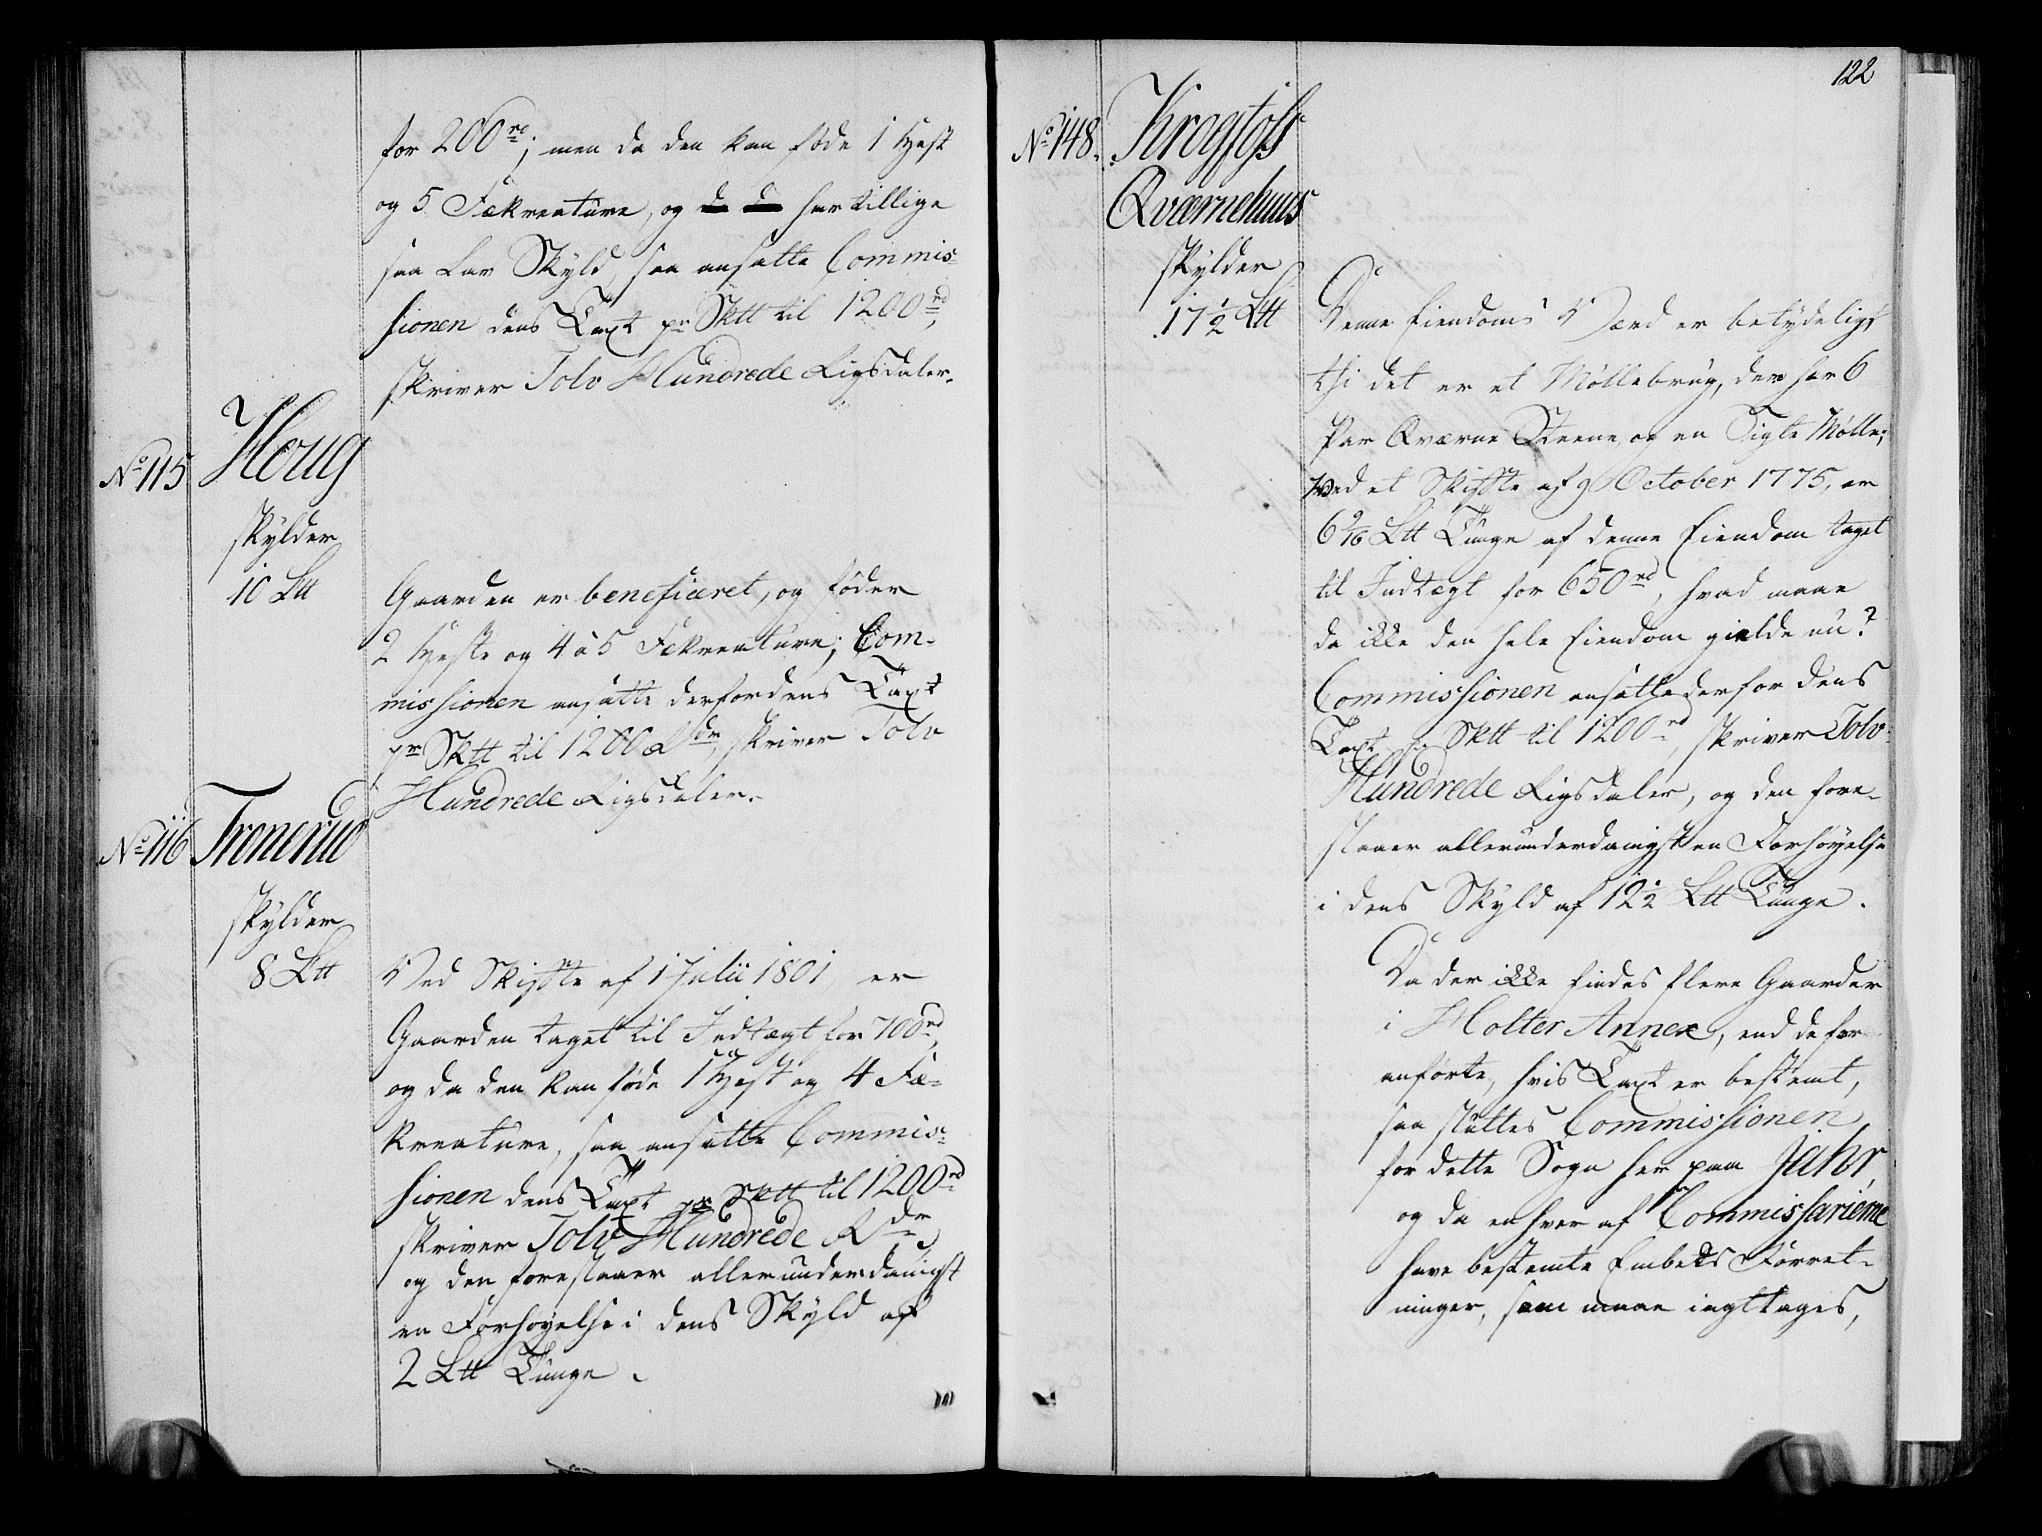 for 200 rd; men da den kan föde 1 Hest
og 5 Fækreature, og har tillige
saa lav Skyld, saa ansatte Commis-
sionen dens Taxt pr Sktt til 1200 rd,
skriver Tolv Hundrede Rigsdaler.
No 115
Houg
skylder
10 Ltt
Gaarden er beneficeret, og föder
2 Heste og 4 à 5 Fækreature; Com-
missionen ansatte derfor dens Taxt
pr Sktt til 1200 Rdr, skriver Tolv
Hundrede Rigsdaler.
No 116
Tronerud
skylder
8 Ltt
Ved Skifte af 1 Julii 1801, er
Gaarden taget til Indtægt for 700 rd,
og da den kan föde 1 Hest og 4 Fæ-
kreature, saa ansatte Commis-
sionen dens Taxt pr Sktt til 1200 rd
skriver Tolv Hundrede Rdr,
og den foreslaaer allerunderdanigst
en Forhöyelse i dens Skyld af
2 Ltt Tunge.
122
No 148.
Krogfoss
Qværnehuus
skylder
17 1/2 Ltt
Denne Eiendoms Værd er betydeligt
thi det er et Möllebrug, der har 6
Par Qværne Steene, og en Sigte Mölle;
Ved et Skifte af 9 October 1775, er
6 9/16 Ltt Tunge af denne Eiendom taget
til Indtægt for 650 rd, hvad maae
da ikke den hele Eiendom gielde nu?
Commissionen ansatte derfor dens
Taxt pr Sktt til 1200 rd, skriver Tolv
Hundrede Rigsdaler, og den fore-
slaaer allerunderdanigst en Forhöyelse
i dens Skyld af 12 1/2 Ltt Tunge.
Da der ikke findes flere Gaarder
i Holter Annex, end de for
anförte, hvis Taxt er bestemt,
saa sluttes Commissionen
for dette Sogn her paa Jahr,
og da enhver af Commissarierne
have bestemte Embeds Forret-
ninger, som maae iagttages,